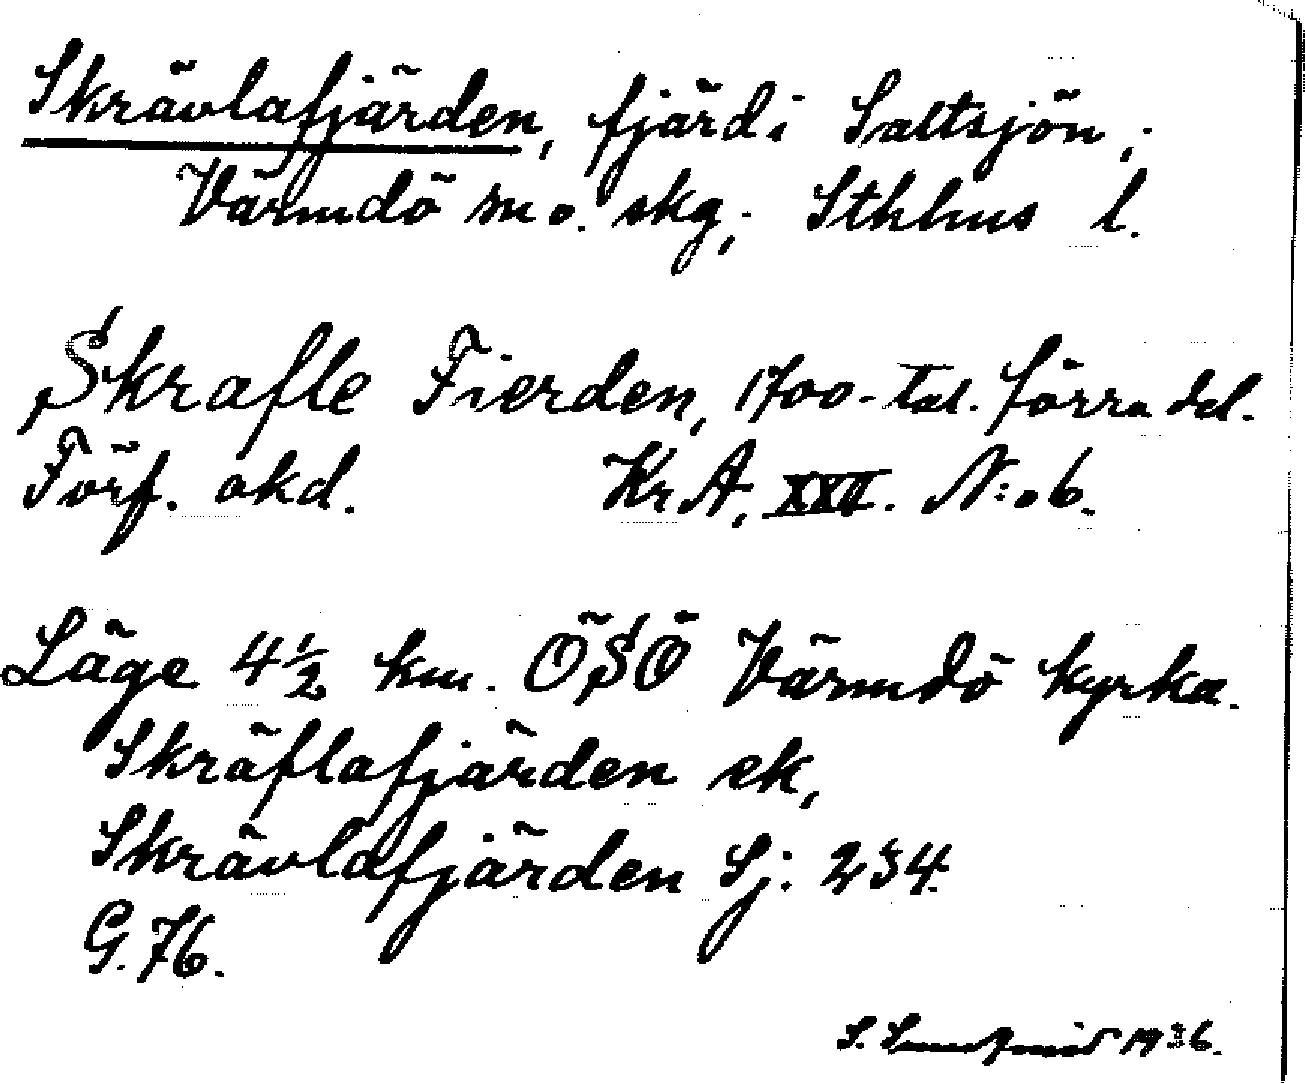 Skrävlafjärden, fjärd i Saltsjön,
Värmdö sn o. skg, Sthlms l.
Skrafle Fierden, 1700-tal. förra del.
Förf. okd. Kr A, XXII. N:o 6.
Läge 4 1/2 km. ÖSÖ Värmdö kyrka.
Skräflafjärden ek,
Skrävlafjärden Sj: 234
G. 76.
S. 1936.